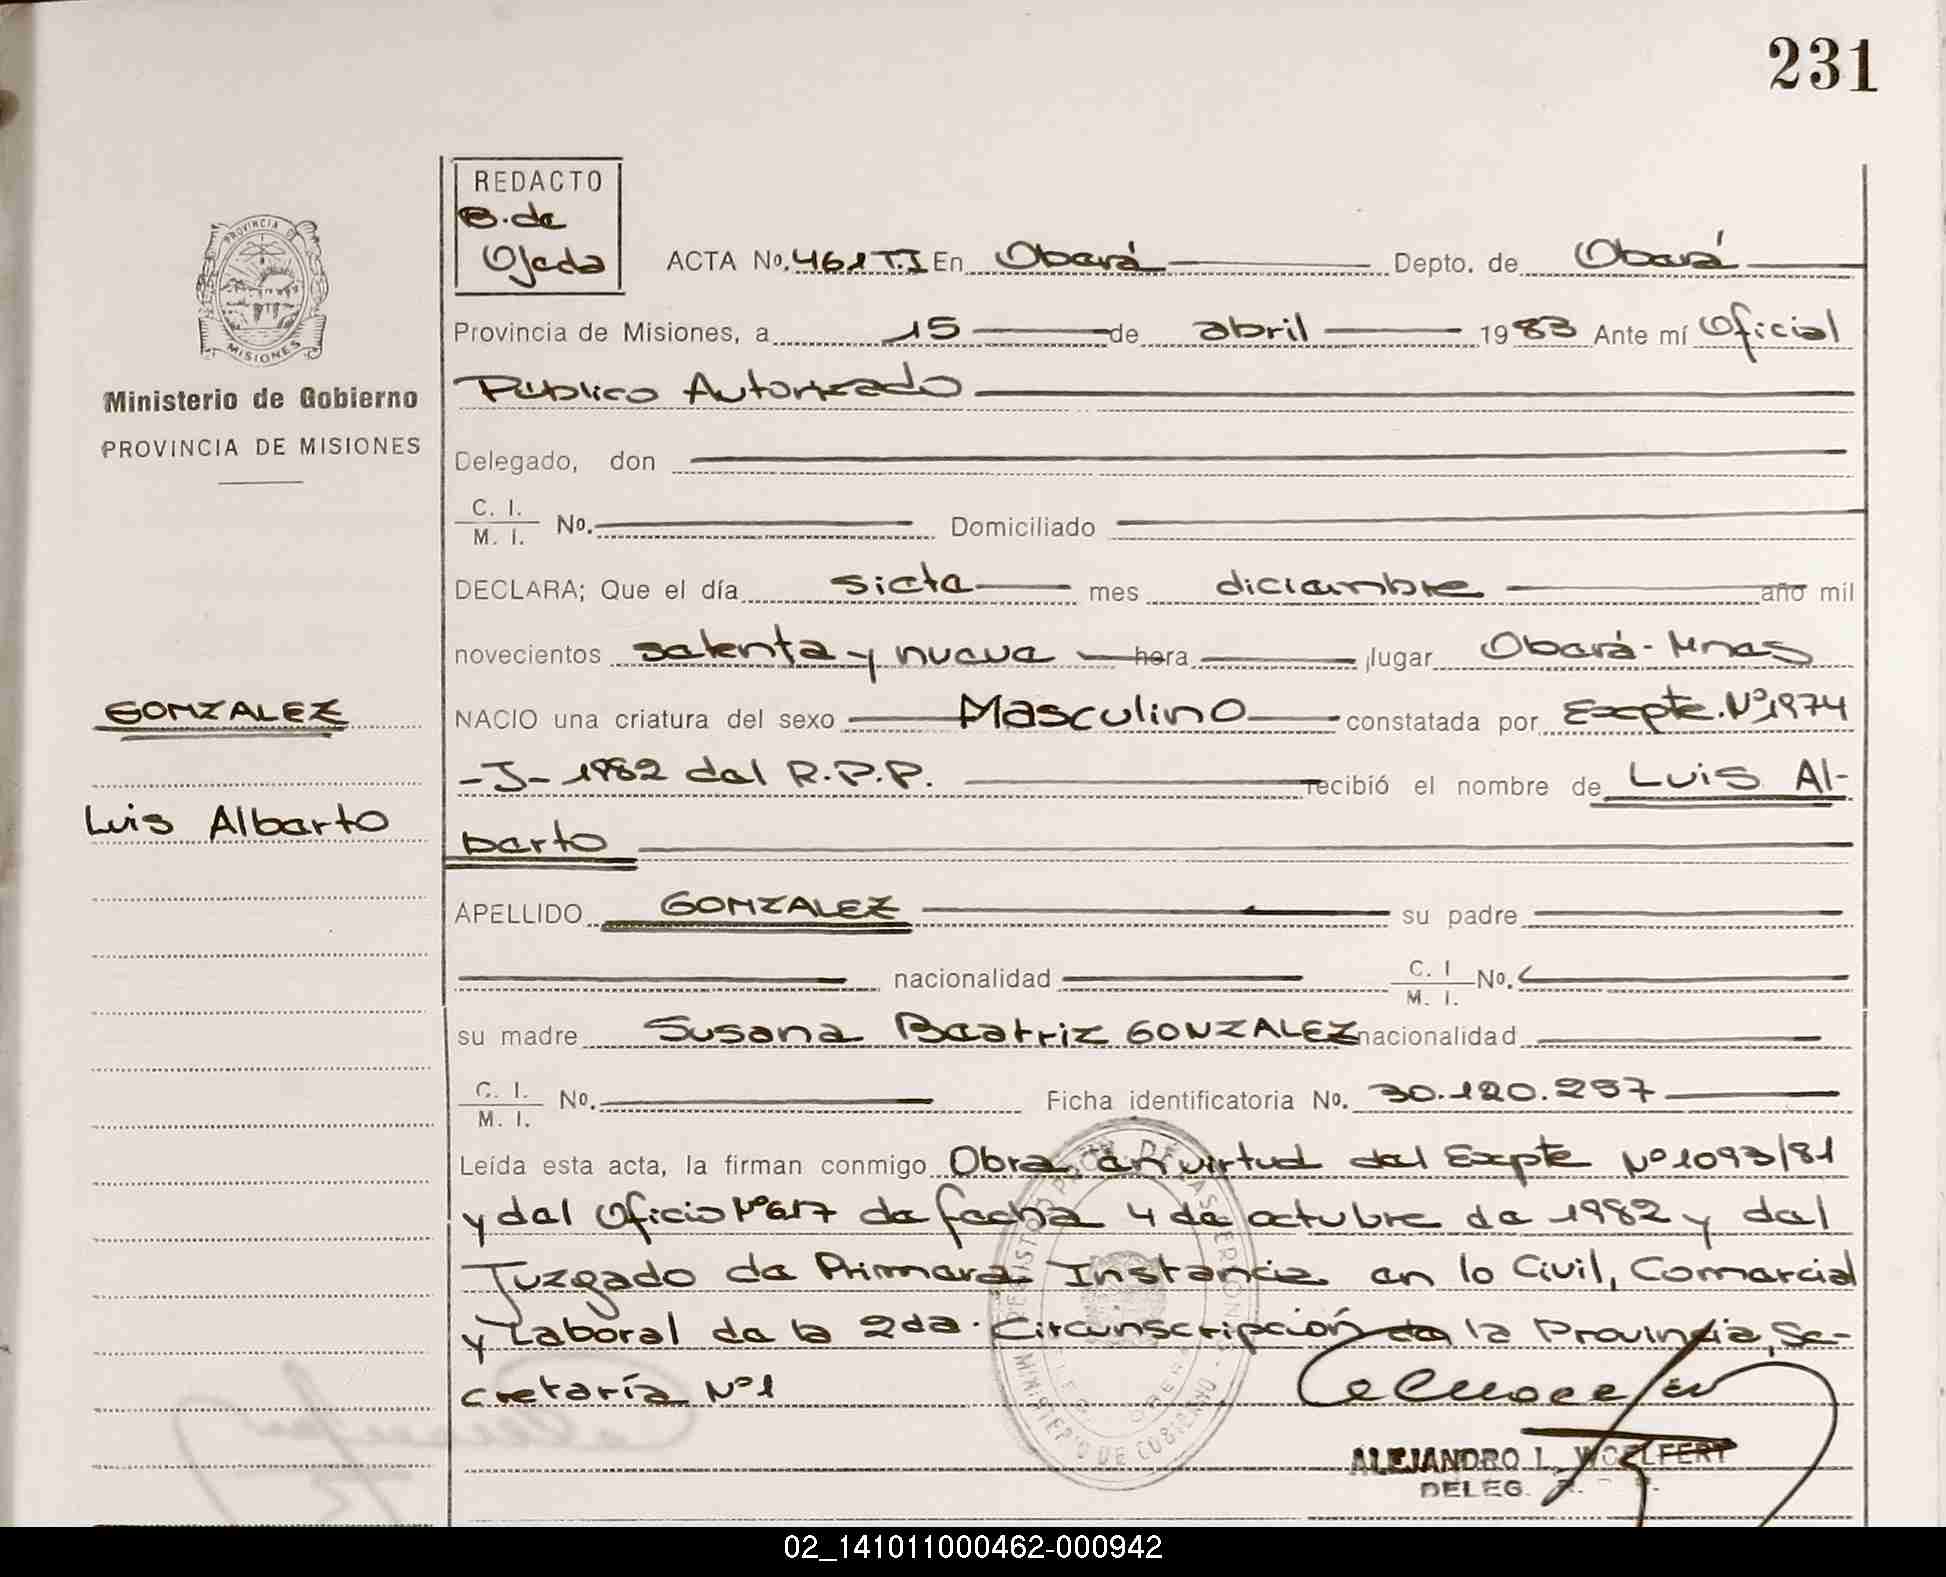 231
REDACTO
B. de
Ojeda
ACTA No. 461 T.I En Oberá Depto. de Oberá
PROVINCIA DE
MISIONES
Provincia de Misiones, a 15 de abril 1983 Ante mí Oficial
Público Autorizado
Ministerio de Gobierno
PROVINCIA DE MISIONES
Delegado, don
C. I.
M. I. No. Domiciliado
DECLARA; Que el día siete mes diciembre año mil
novecientos setenta y nueve hora lugar Oberá - Mnes
GONZALEZ
NACIO una criatura del sexo Masculino constatada por Expte. Nº 1974
-J- 1982 del R.P.P. recibió el nombre de Luis Al-
Luis Alberto
berto
APELLIDO GONZALEZ su padre
nacionalidad C. I
M. I. No.
su madre Susana Beatriz GONZALEZ nacionalidad
C. I.
M. I. No. Ficha identificatoria No. 30.120.257
Leída esta acta, la firman conmigo Obra en virtud del Expte Nº 1093/81
y del Oficio Nº 617 de fecha 4 de octubre de 1982 y del
Juzgado de Primera Instancia en lo Civil, Comercial
y Laboral de la 2da. Circunscripción de la Provincia, Se-
cretaría Nº 1
MINISTERIO DE GOBIERNO
ALEJANDRO L. WOELFERT
DELEG.
02_141011000462-000942